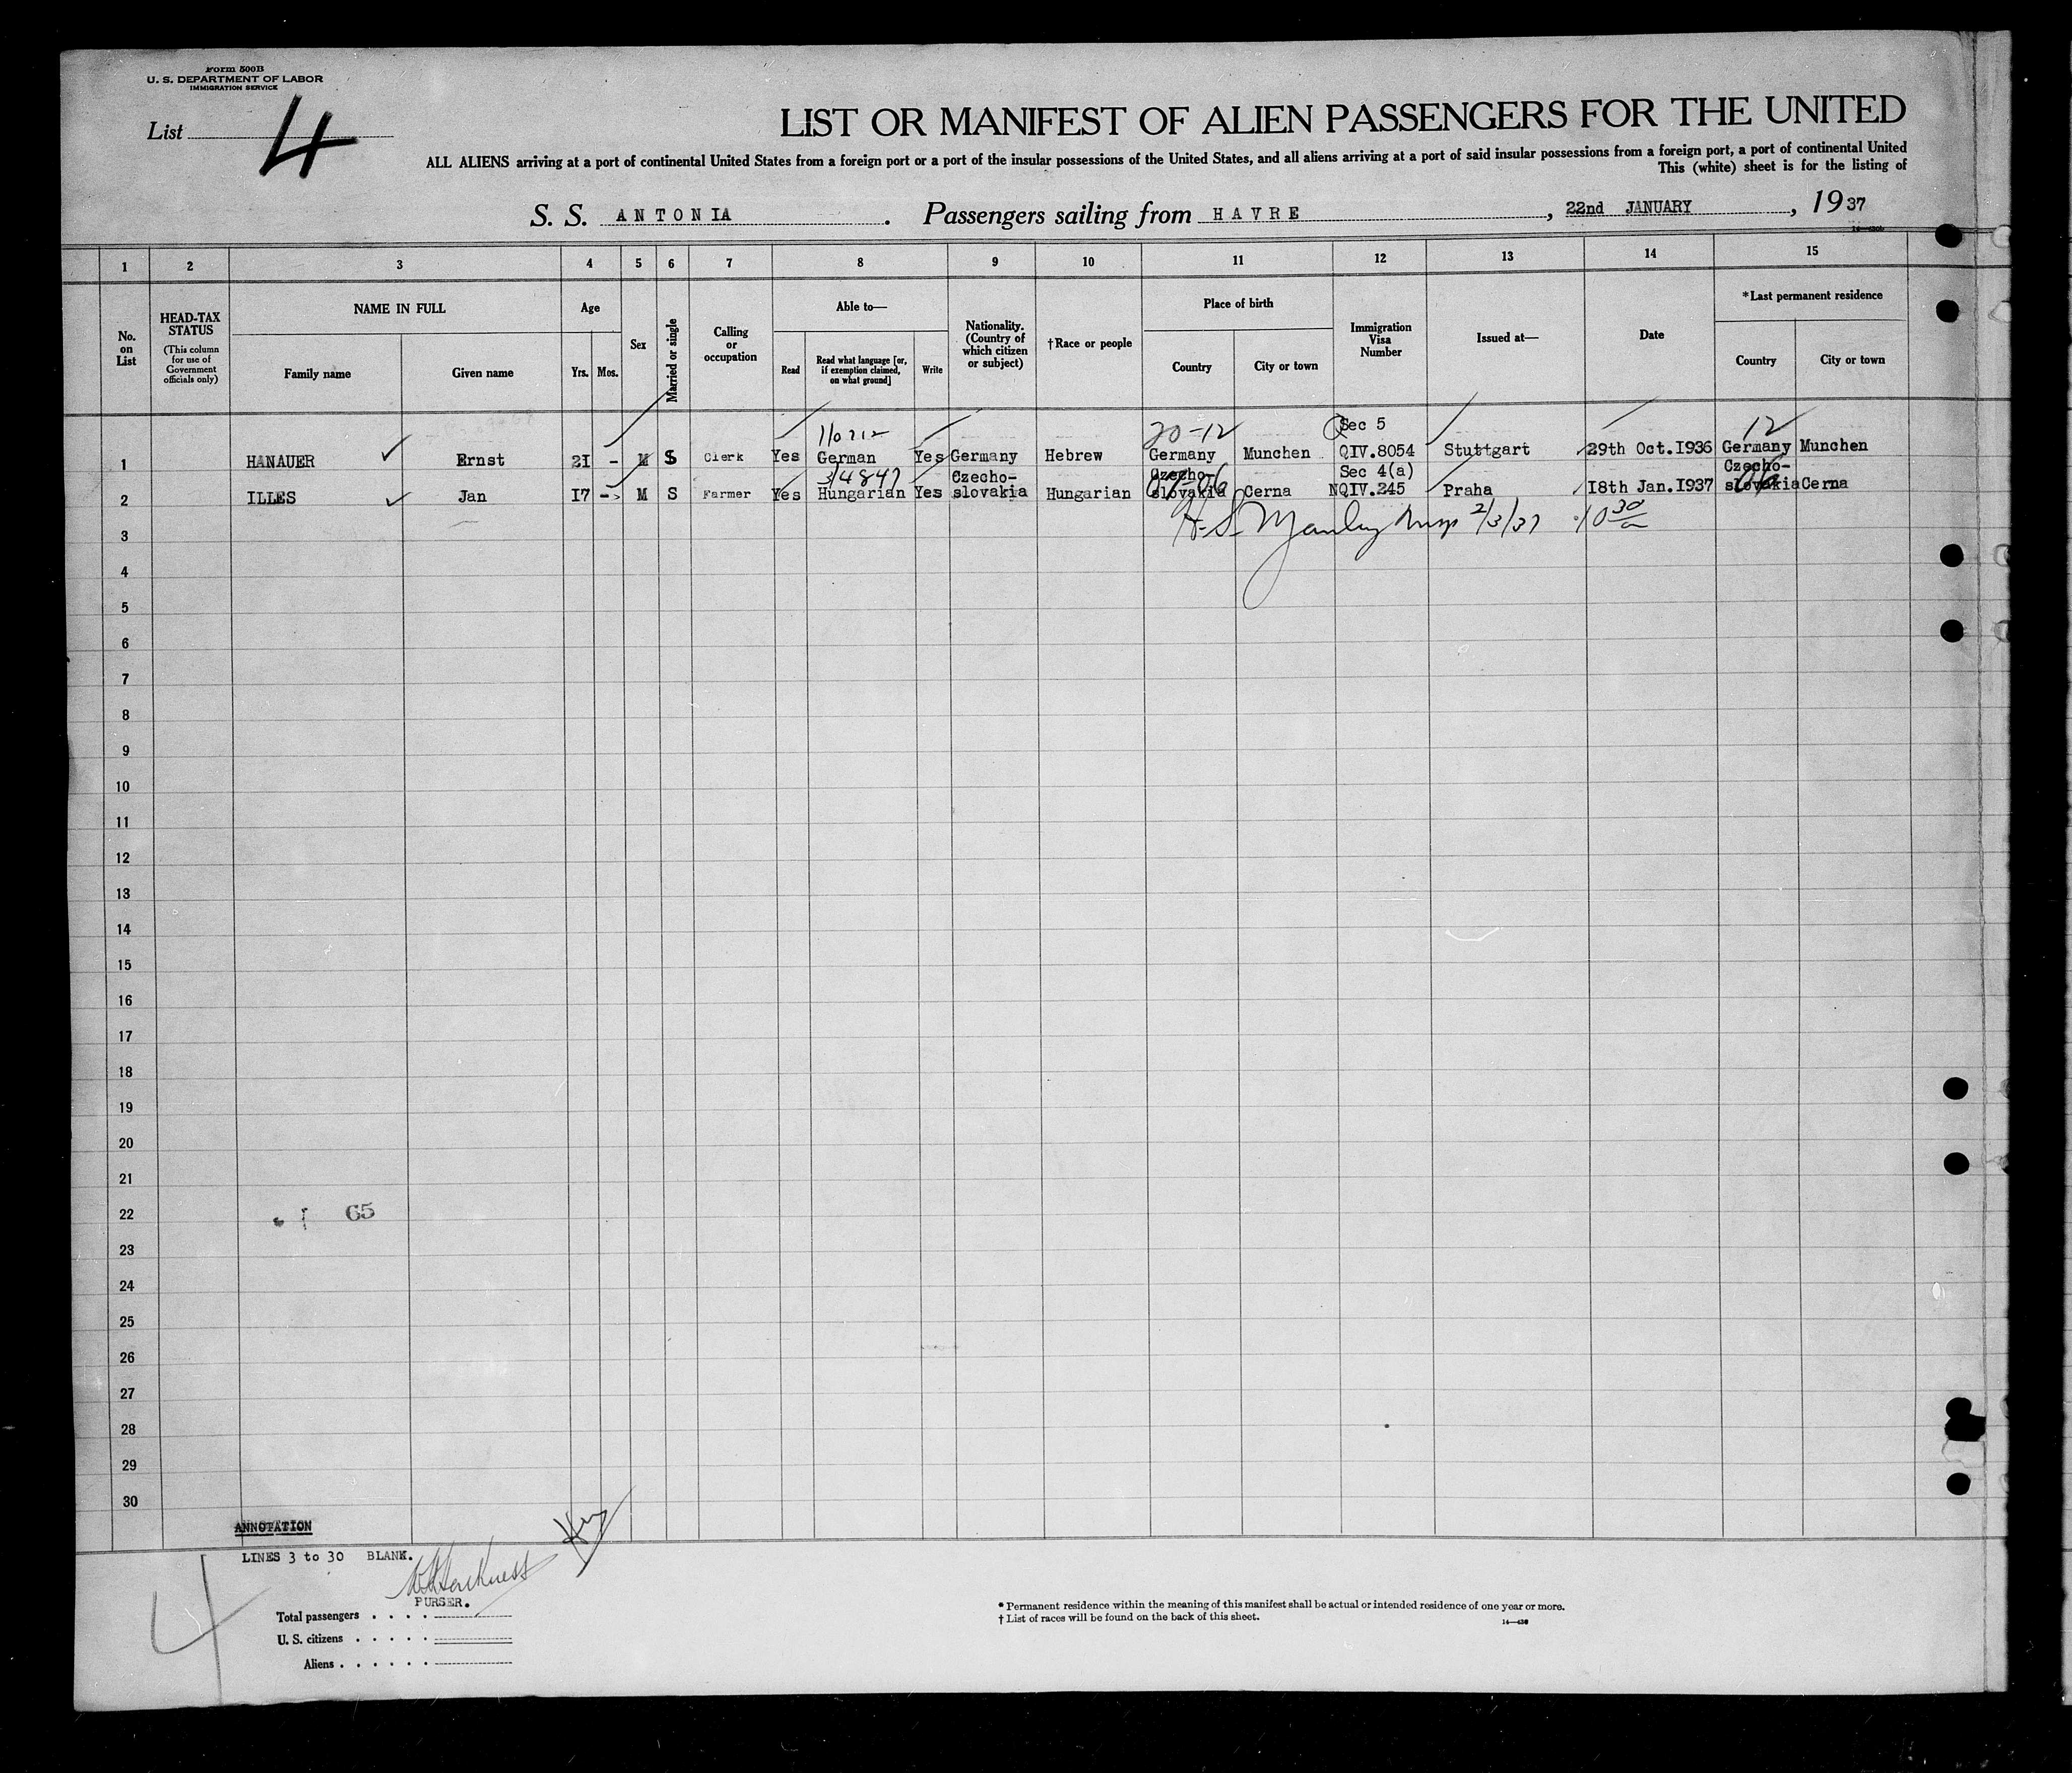 Form 500B
U. S. DEPARTMENT OF LABOR
IMMIGRATION SERVICE
List 4
LIST OR MANIFEST OF ALIEN PASSENGERS FOR THE UNITED
ALL ALIENS arriving at a port of continental United States from a foreign port or a port of the insular possessions of the United States, and all aliens arriving at a port of said insular possessions from a foreign port, a port of continental United
This (white) sheet is for the listing of
S. S. ANTONIA. Passengers sailing from HAVRE, 22nd JANUARY, 1937
1 2 3 4 5 6 7 8 9 10 11 12 13 14 15
No. on List
HEAD-TAX STATUS (This column for use of Government officials only)
NAME IN FULL
Family name Given name
Age
Yrs. Mos.
Sex
Married or single
Calling or occupation
Able to—
Read Read what language [or, if exemption claimed, on what ground] Write
Nationality. (Country of which citizen or subject)
†Race or people
Place of birth
Country City or town
Immigration Visa Number
Issued at—
Date
*Last permanent residence
Country City or town
20-12 Sec 5 12
1 HANAUER Ernst 2I - M S Clerk Yes German Yes Germany Hebrew Germany Munchen QIV.8054 Stuttgart 29th Oct.I936 Germany Munchen
34847 Sec 4(a)
2 ILLES Jan I7 - M S Farmer Yes Hungarian Yes Czecho-slovakia Hungarian Czecho-slovakia Cerna NQIV.245 Praha I8th Jan.I937 Czecho-slovakia Cerna
3 2/3/37 10 30
4
5
6
7
8
9
10
11
12
13
14
15
16
17
18
19
20
21
22 65
23
24
25
26
27
28
29
30
ANNOTATION
LINES 3 to 30 BLANK.
4
PURSER.
Total passengers . . . .
U. S. citizens . . . . .
Aliens . . . . . .
* Permanent residence within the meaning of this manifest shall be actual or intended residence of one year or more.
† List of races will be found on the back of this sheet.